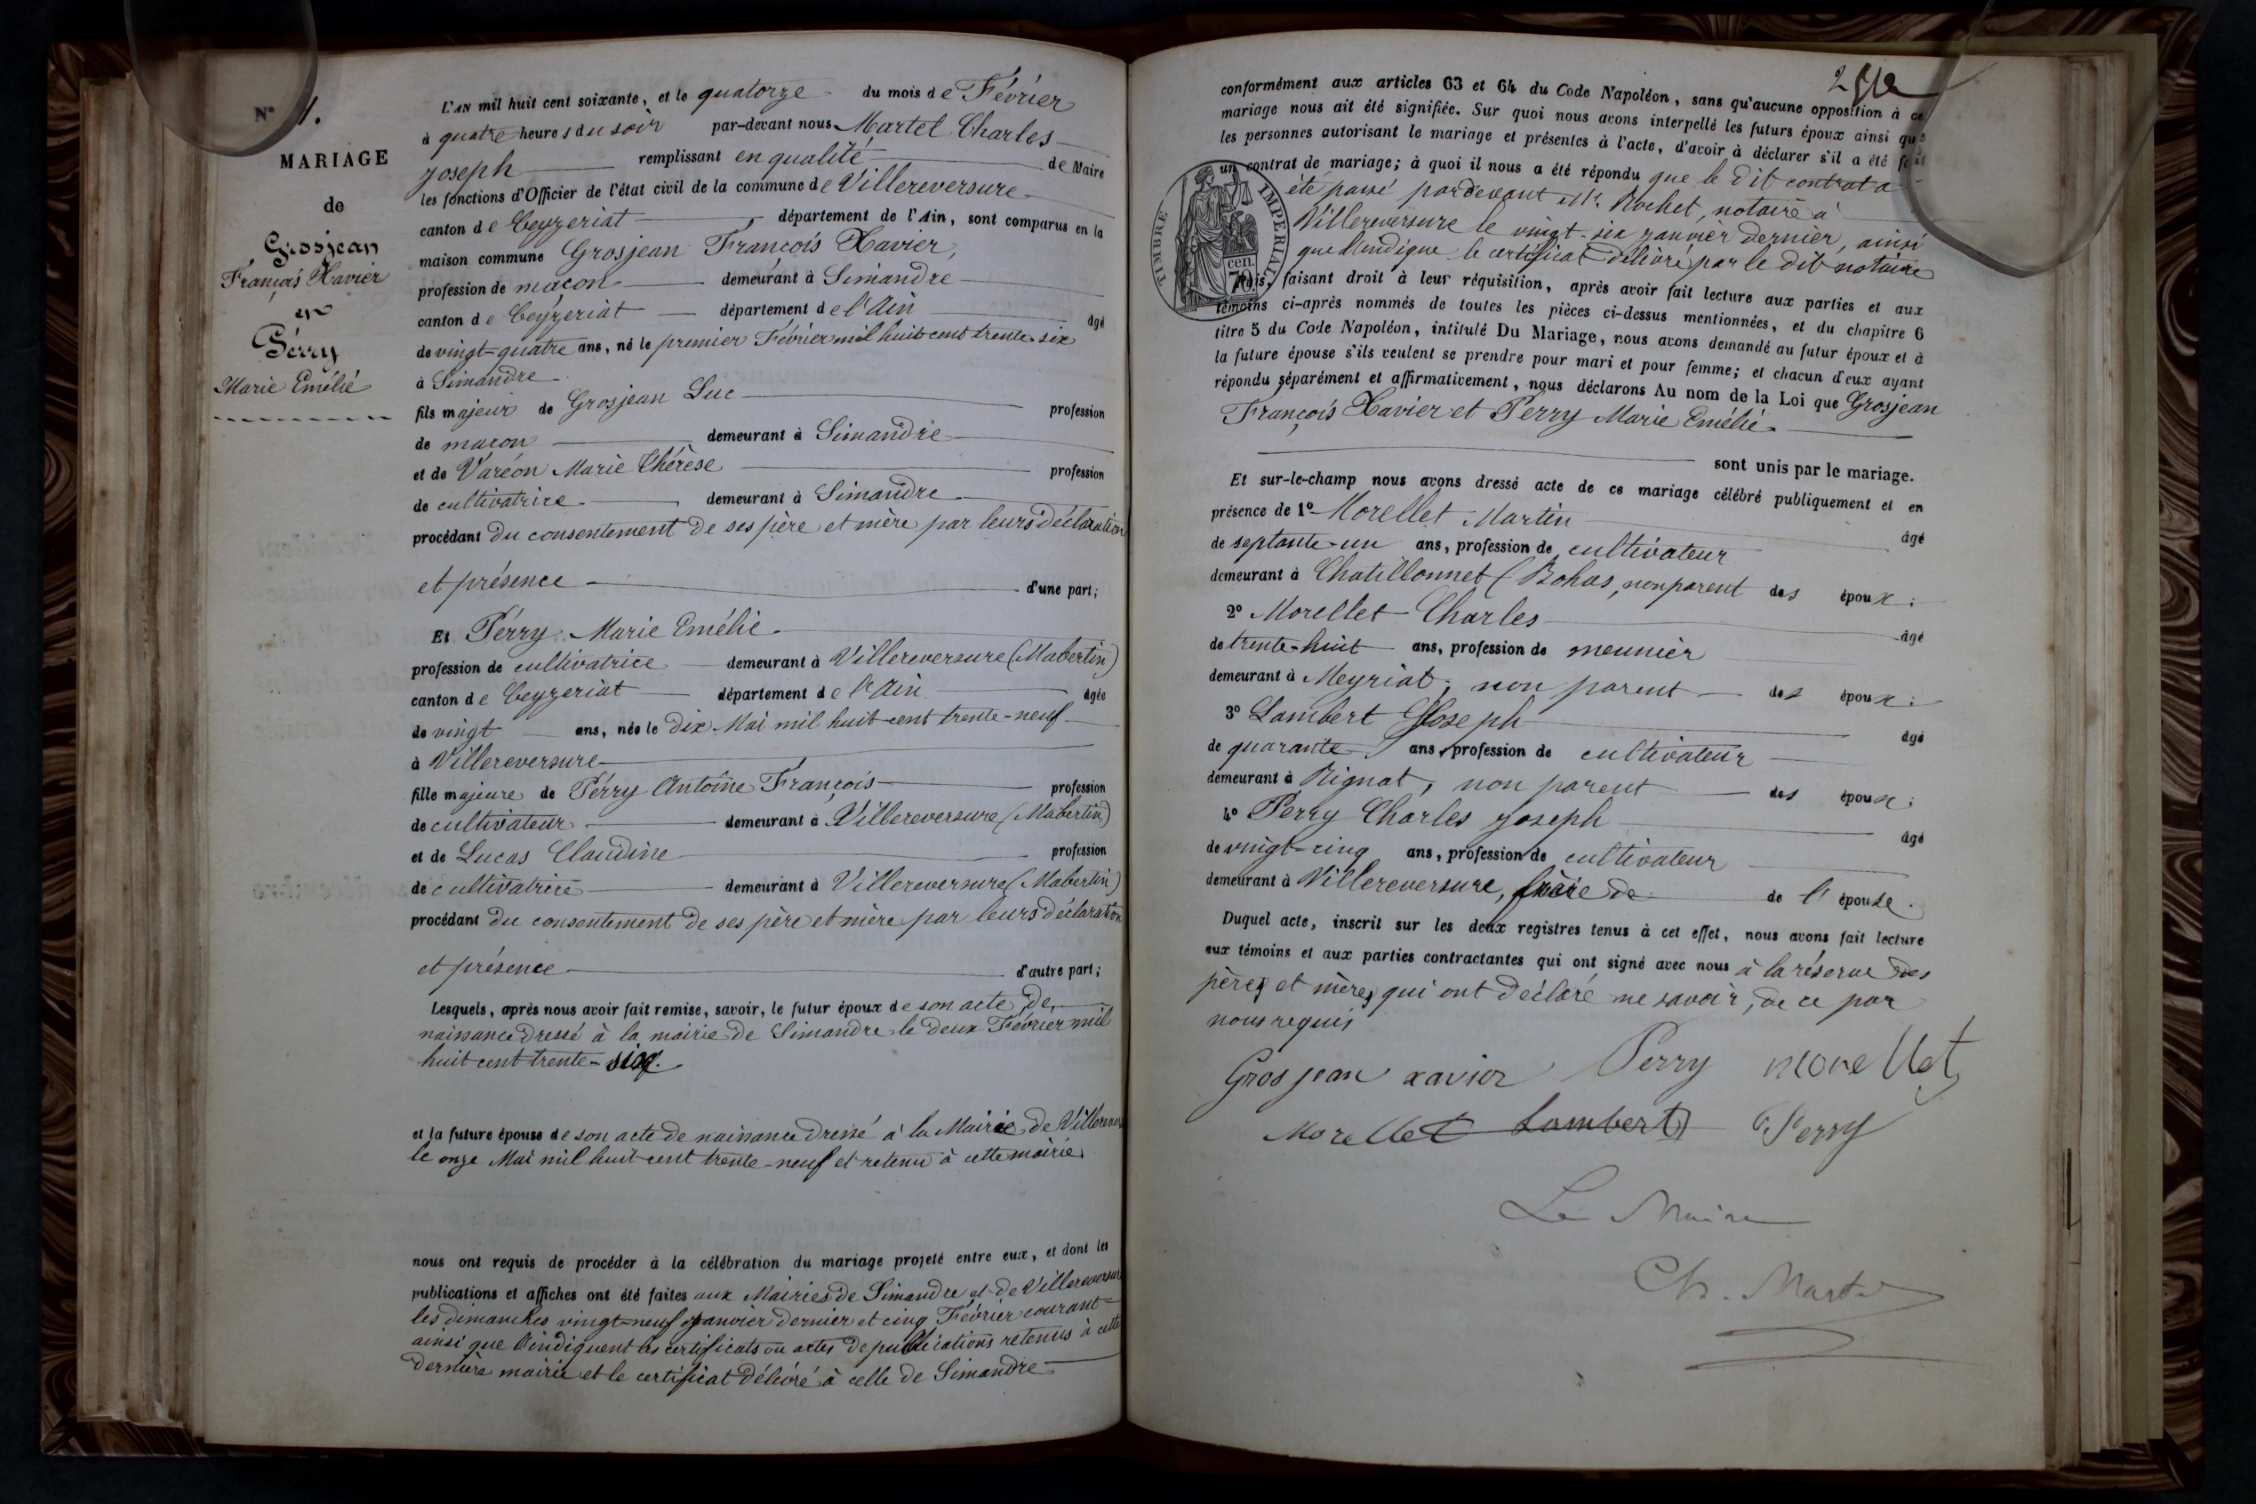 N° 1.
MARIAGE
de
Grosjean
François Xavier
et
Pérry
Marie Emélié
L'AN mil huit cent soixante, et le quatorze du mois de Février
à quatre heures du soir par-devant nous Martel Charles
joseph remplissant en qualité de Maire
les fonctions d'Officier de l'état civil de la commune de Villereversure
canton de Ceyzeriat, département de l'Ain, sont comparus en la
maison commune Grosjean François Xavier,
profession de maçon demeurant à Simandre
canton de Ceyzeriat département de l'Ain âgé
de vingt-quatre ans, né le premier Février mil huit cent trente six
à Simandre
fils majeur de Grosjean Luc profession
de maçon demeurant à Simandre
et de Varéon Marie Thérèse profession
de cultivatrice demeurant à Simandre
procédant du consentement de ses père et mère par leurs déclaration
et présence d'une part;
Et Pérry Marie Emélie
profession de cultivatrice demeurant à Villereversure (Mabertin)
canton de Ceyzeriat département de l'Ain âgée
de vingt ans, née le dix Mai mil huit cent trente-neuf
à Villereversure
fille majeure de Pérry Antoine François profession
de cultivateur demeurant à Villereversure (Mabertin)
et de Lucas Claudine profession
de cultivatrice demeurant à Villereversure (Mabertin)
procédant du consentement de ses père et mère par leurs déclaration
et présence d'autre part;
Lesquels, après nous avoir fait remise, savoir, le futur époux de son acte de
naissance dressé à la mairie de Simandre le deux Février mil
huit cent trente-six.
et la future épouse de son acte de naissance dressé à la Mairie de Villerever
le onze Mai mil huit cent trente-neuf et retenu à cette mairie
nous ont requis de procéder à la célébration du mariage projeté entre eux, et dont les
publications et affiches ont été faites aux Mairies de Simandre et de Villereversure
les dimanches vingt-neuf janvier dernier et cinq Février courant
ainsi que l'indiquent les certificats ou actes de publications retenus à cette
dernière mairie et le certificat délivré à celle de Simandre
conformément aux articles 63 et 64 du Code Napoléon, sans qu'aucune opposition à ce
mariage nous ait été signifiée. Sur quoi nous avons interpellé les futurs époux ainsi que
les personnes autorisant le mariage et présentes à l'acte, d'avoir à déclarer s'il a été fait
un contrat de mariage; à quoi il nous a été répondu que le dit contrat a
été passé pardevant Mr. Rochet, notaire à
Villereversure le vingt-six janvier dernier, ainsi
que l'indique le certificat délivré par le dit notaire
TIMBRE IMPÉRIAL
70 cen.
Mais, faisant droit à leur réquisition, après avoir fait lecture aux parties et aux
témoins ci-après nommés de toutes les pièces ci-dessus mentionnées, et du chapitre 6
titre 5 du Code Napoléon, intitulé Du Mariage, nous avons demandé au futur époux et à
la future épouse s'ils veulent se prendre pour mari et pour femme; et chacun d'eux ayant
répondu séparément et affirmativement, nous déclarons Au nom de la Loi que Grosjean
François Xavier et Pérry Marie Emélié
sont unis par le mariage.
Et sur-le-champ nous avons dressé acte de ce mariage célébré publiquement et en
présence de 1° Morellet Martin âgé
de septante-un ans, profession de cultivateur
demeurant à Chatillonnet (Bohas, non parent des époux;
2° Morellet Charles âgé
de trente-huit ans, profession de meunier
demeurant à Meyriat, non parent des époux;
3° Lambert Joseph âgé
de quarante ans, profession de cultivateur
demeurant à Rignat, non parent des époux;
4° Pérry Charles joseph âgé
de vingt-cinq ans, profession de cultivateur
demeurant à Villereversure, frère de de l'épouse.
Duquel acte, inscrit sur les deux registres tenus à cet effet, nous avons fait lecture
aux témoins et aux parties contractantes qui ont signé avec nous à la réserve des
pères et mères qui ont déclaré ne savoir, de ce par
nous requis
Gros jean xavier Perry morellet
Morellet Lambert Perry
Le Maire
Ch. Martel